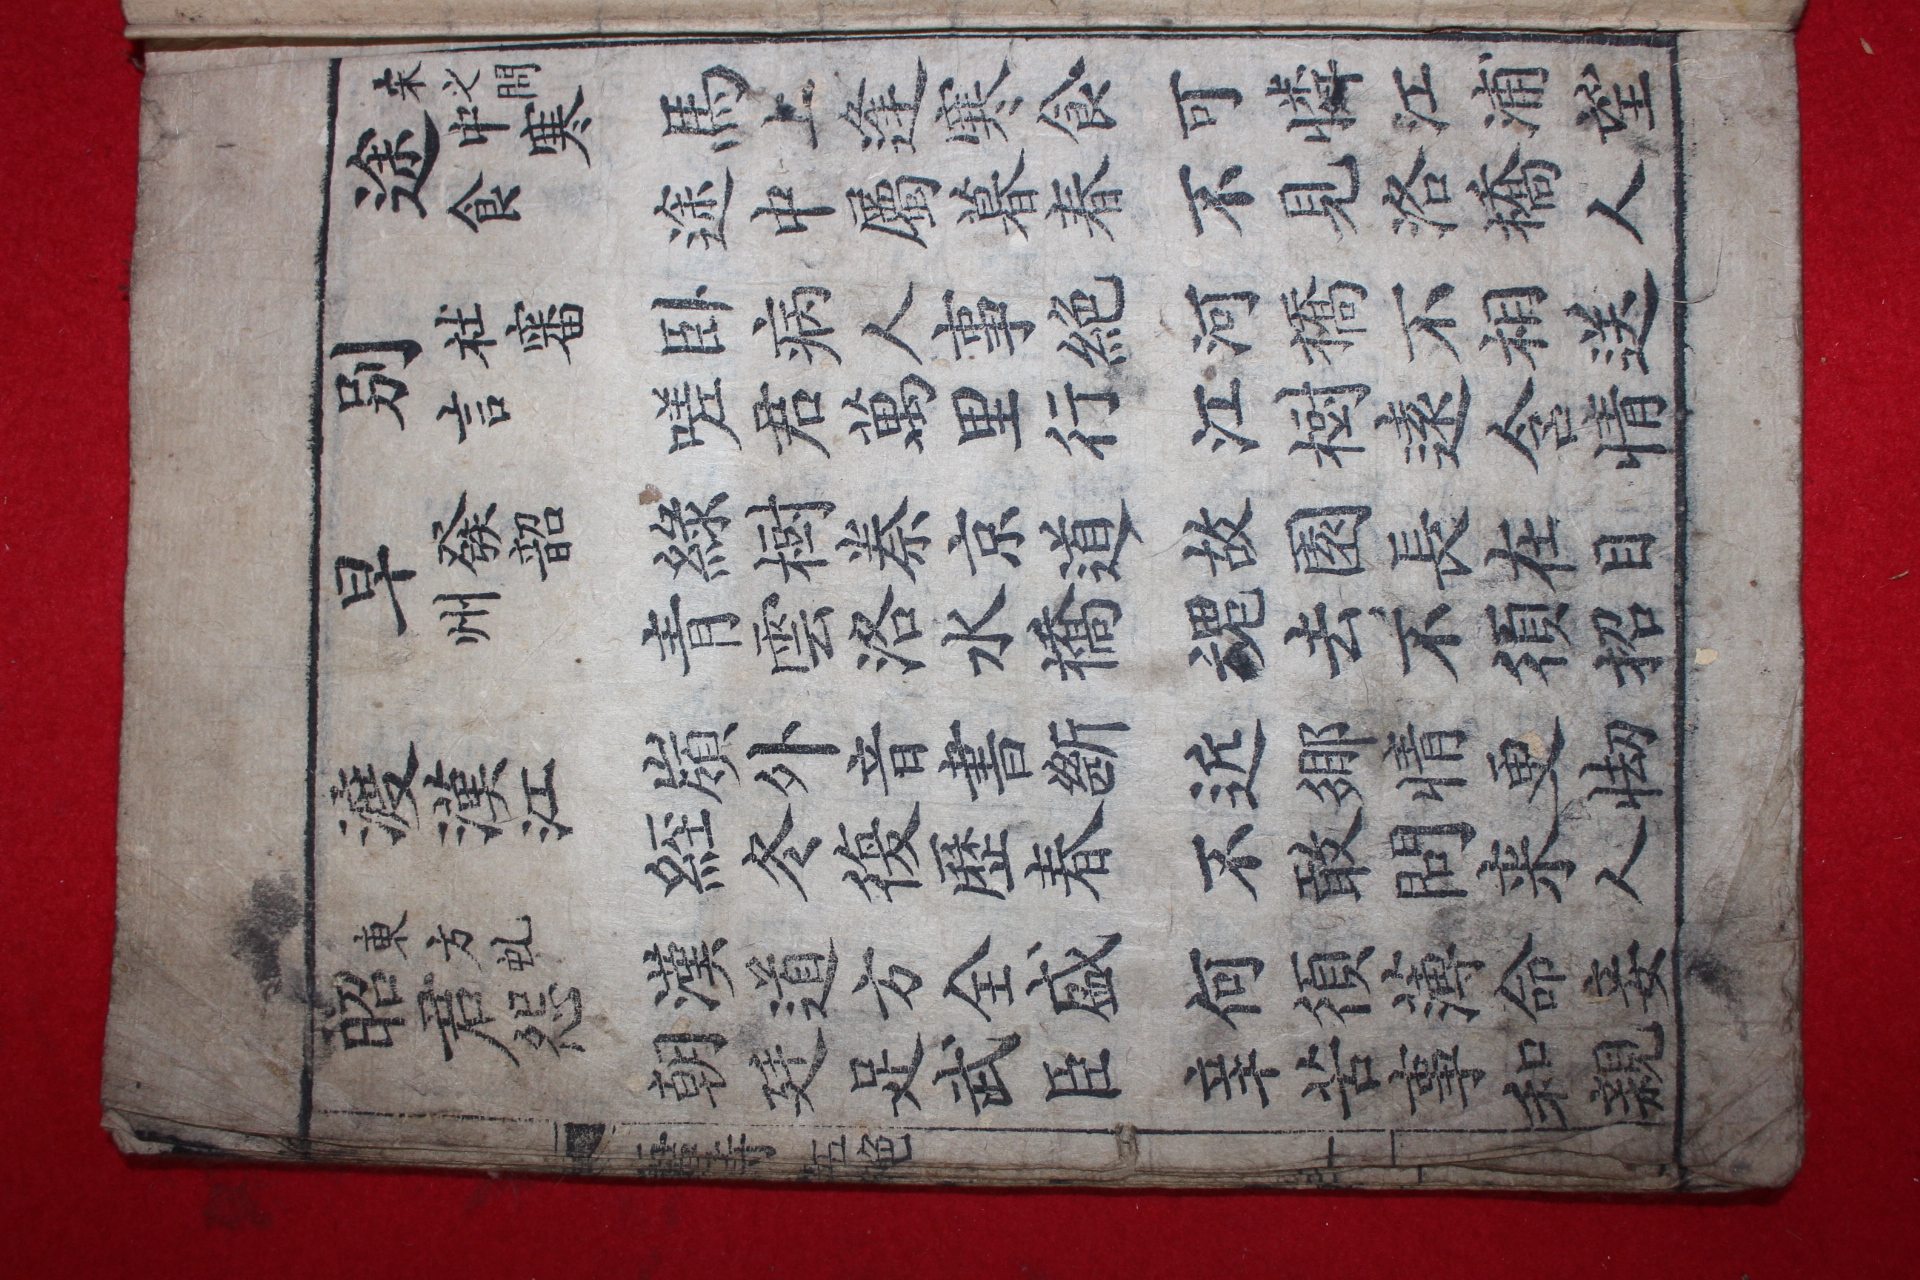 途中寒食
宋之問
馬上逢寒食
途中屬暮春
可憐江浦望
不見洛橋人
別杜審言
臥病人事絶
嗟君萬里行
河橋不相送
江樹遠含情
早發韶州
綠樹秦京道
青雲洛水橋
故園長在目
魂去不須招
渡漢江
嶺外音書斷
經冬復歷春
近鄉情更怯
不敢問來人
昭君怨
東方虬
漢道方全盛
朝廷足武臣
何須薄命妾
辛苦事和親
五絶